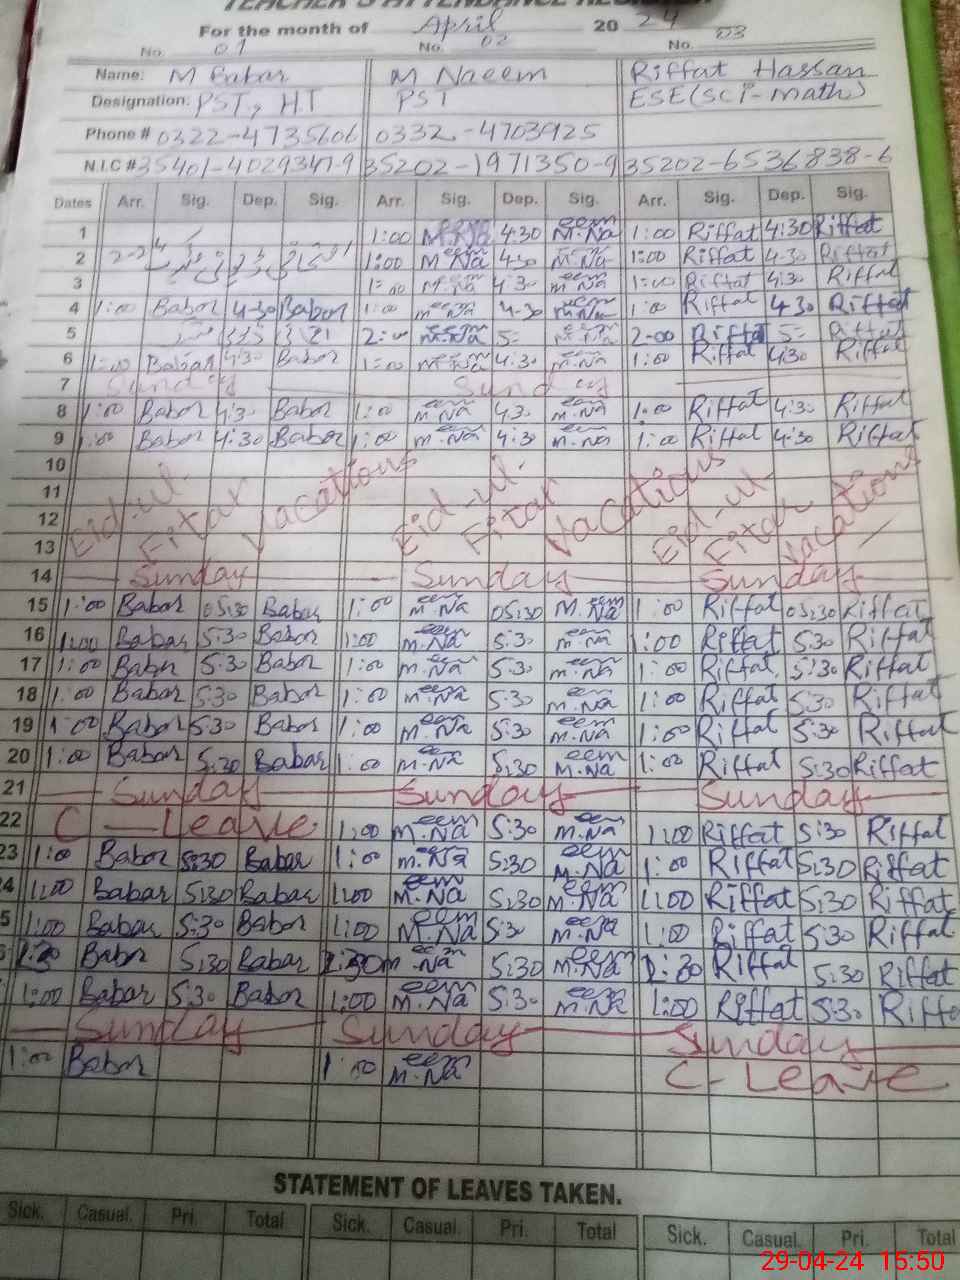 TEACHER'S ATTENDANCE REGISTER
For the month of April 2024
No. 01 No. 02 No. 03
Name: M Babar M Naeem Riffat Hassan
Designation: PST, HT PST ESE(SCI-math)
Phone # 0322-4735606 0332-4703925
N.I.C # 35401-4029347-9 35202-1971350-9 35202-6536838-6
Dates Arr. Sig. Dep. Sig. Arr. Sig. Dep. Sig. Arr. Sig. Dep. Sig.
1 1:00 M.Naeem 4:30 M.Naeem 1:00 Riffat 4:30 Riffat
2 1:00 M.Naeem 4:30 M.Naeem 1:00 Riffat 4:30 Riffat
3 1:00 M.Naeem 4:30 M.Naeem 1:00 Riffat 4:30 Riffat
4 1:00 Babar 4:30 Babar 1:00 M.Naeem 4:30 M.Naeem 1:00 Riffat 4:30 Riffat
5 2:00 M.Naeem 5= M.Naeem 2-00 Riffat 5= Riffat
6 1:00 Babar 4:30 Babar 1:00 M.Naeem 4:30 M.Naeem 1:00 Riffat 4:30 Riffat
7 Sunday Sunday
8 1:00 Babar 4:30 Babar 1:00 M.Naeem 4:30 M.Naeem 1:00 Riffat 4:30 Riffat
9 1:00 Babar 4:30 Babar 1:00 M.Naeem 4:30 M.Naeem 1:00 Riffat 4:30 Riffat
10
11
12 Eid-ul-Fitar Vacations Eid-ul-Fitar Vacations Eid-ul-Fitar Vacations
13
14 Sunday Sunday Sunday
15 1:00 Babar 05:30 Babar 1:00 M.Naeem 05:30 M.Naeem 1:00 Riffat 05:30 Riffat
16 1:00 Babar 5:30 Babar 1:00 M.Naeem 5:30 M.Naeem 1:00 Riffat 5:30 Riffat
17 1:00 Babar 5:30 Babar 1:00 M.Naeem 5:30 M.Naeem 1:00 Riffat 5:30 Riffat
18 1:00 Babar 5:30 Babar 1:00 M.Naeem 5:30 M.Naeem 1:00 Riffat 5:30 Riffat
19 1:00 Babar 5:30 Babar 1:00 M.Naeem 5:30 M.Naeem 1:00 Riffat 5:30 Riffat
20 1:00 Babar 5:30 Babar 1:00 M.Naeem 5:30 M.Naeem 1:00 Riffat 5:30 Riffat
21 Sunday Sunday Sunday
22 C-Leave 1:00 M.Naeem 5:30 M.Naeem 1:00 Riffat 5:30 Riffat
23 1:00 Babar 5:30 Babar 1:00 M.Naeem 5:30 M.Naeem 1:00 Riffat 5:30 Riffat
4 1:00 Babar 5:30 Babar 1:00 M.Naeem 5:30 M.Naeem 1:00 Riffat 5:30 Riffat
5 1:00 Babar 5:30 Babar 1:00 M.Naeem 5:30 M.Naeem 1:00 Riffat 5:30 Riffat
Babar 5:30 Babar M.Naeem 5:30 M.Naeem Riffat 5:30 Riffat
1:00 Babar 5:30 Babar 1:00 M.Naeem 5:30 M.Naeem 1:00 Riffat 5:30 Riffa
Sunday Sunday Sunday
1:00 Babar 1:00 M.Naeem C-Leave
STATEMENT OF LEAVES TAKEN.
Sick. Casual. Pri. Total Sick. Casual. Pri. Total Sick. Casual. Pri. Total
29-04-24 15:50